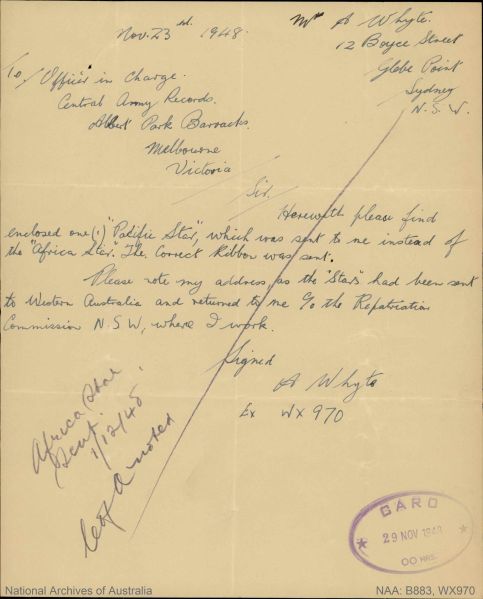 Nov. 23rd. 1948.
Mr A Whyte.
12 Boyce Street
Glebe Point
Sydney
N.S.W.
To/ Officer in Charge.
Central Army Records.
Albert Park Barracks.
Melbourne
Victoria
Sir/
Herewith please find
enclosed one (1) "Pacific Star", which was sent to me instead of
the "Africa Star". The Correct Ribbon was sent.
Please note my address as the "Star" had been sent
to Western Australia and returned to me c/o the Repatriation
Commission N.S.W, where I work.
Signed
A Whyte
Ex WX 970
Africa Star
Sent.
1/12/48
noted
GARD
29 NOV 1948
00 HRS.
National Archives of Australia
NAA: B883, WX970